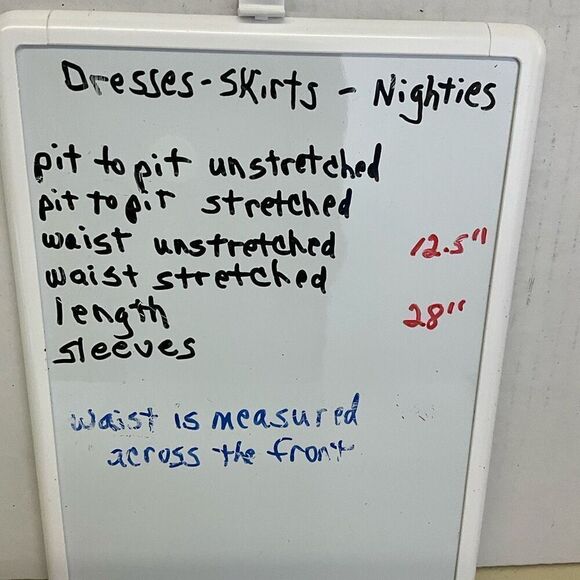 Dresses - Skirts - Nighties
pit to pit unstretched
pit to pit stretched
waist unstretched 12.5"
waist stretched
length 28"
sleeves
waist is measured
across the front